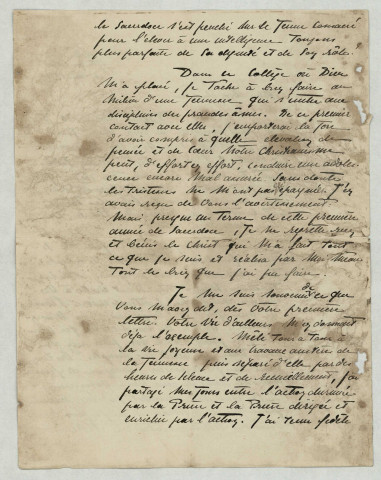 le Sacerdoce s'est penché sur le jeune consacré
pour l'élever à une intelligence toujours
plus parfaite de sa dignité et de son rôle.
Dans ce Collège où Dieu
m'a placé, je tâche à bien faire au
milieu d'une jeunesse qui s'initie aux
disciplines des grandes âmes. De ce premier
contact avec elles, j'emporterai la joie
d'avoir compris à quelle élévation de
pensée et de cœur notre Christianisme
peut, d'effort en effort, conduire une adoles-
cence encore mal assurée. Sans doute
les tristesses ne m'ont pas épargné. J'en
avais reçu de vous l'avertissement
Mais, presque au terme de cette première
année de Sacerdoce, je ne regrette rien
et bénis le Christ qui m'a fait tout
ce que je suis et réalisa par
tout le bien que j'ai pu faire.
Je me suis souvenu de ce que
vous m'aviez dit, dès votre première
lettre. Votre vie d'ailleurs m'en donnait
déjà l'exemple. Mêlé tour à tour à
la vie joyeuse et au travail austère de
la jeunesse puis séparé d'elle par des
heures de silence et de recueillement, j'ai
partagé mes jours entre l'action
par la Prière et la Prière dirigée et
enrichie par l'action. J'ai tenu fidèle